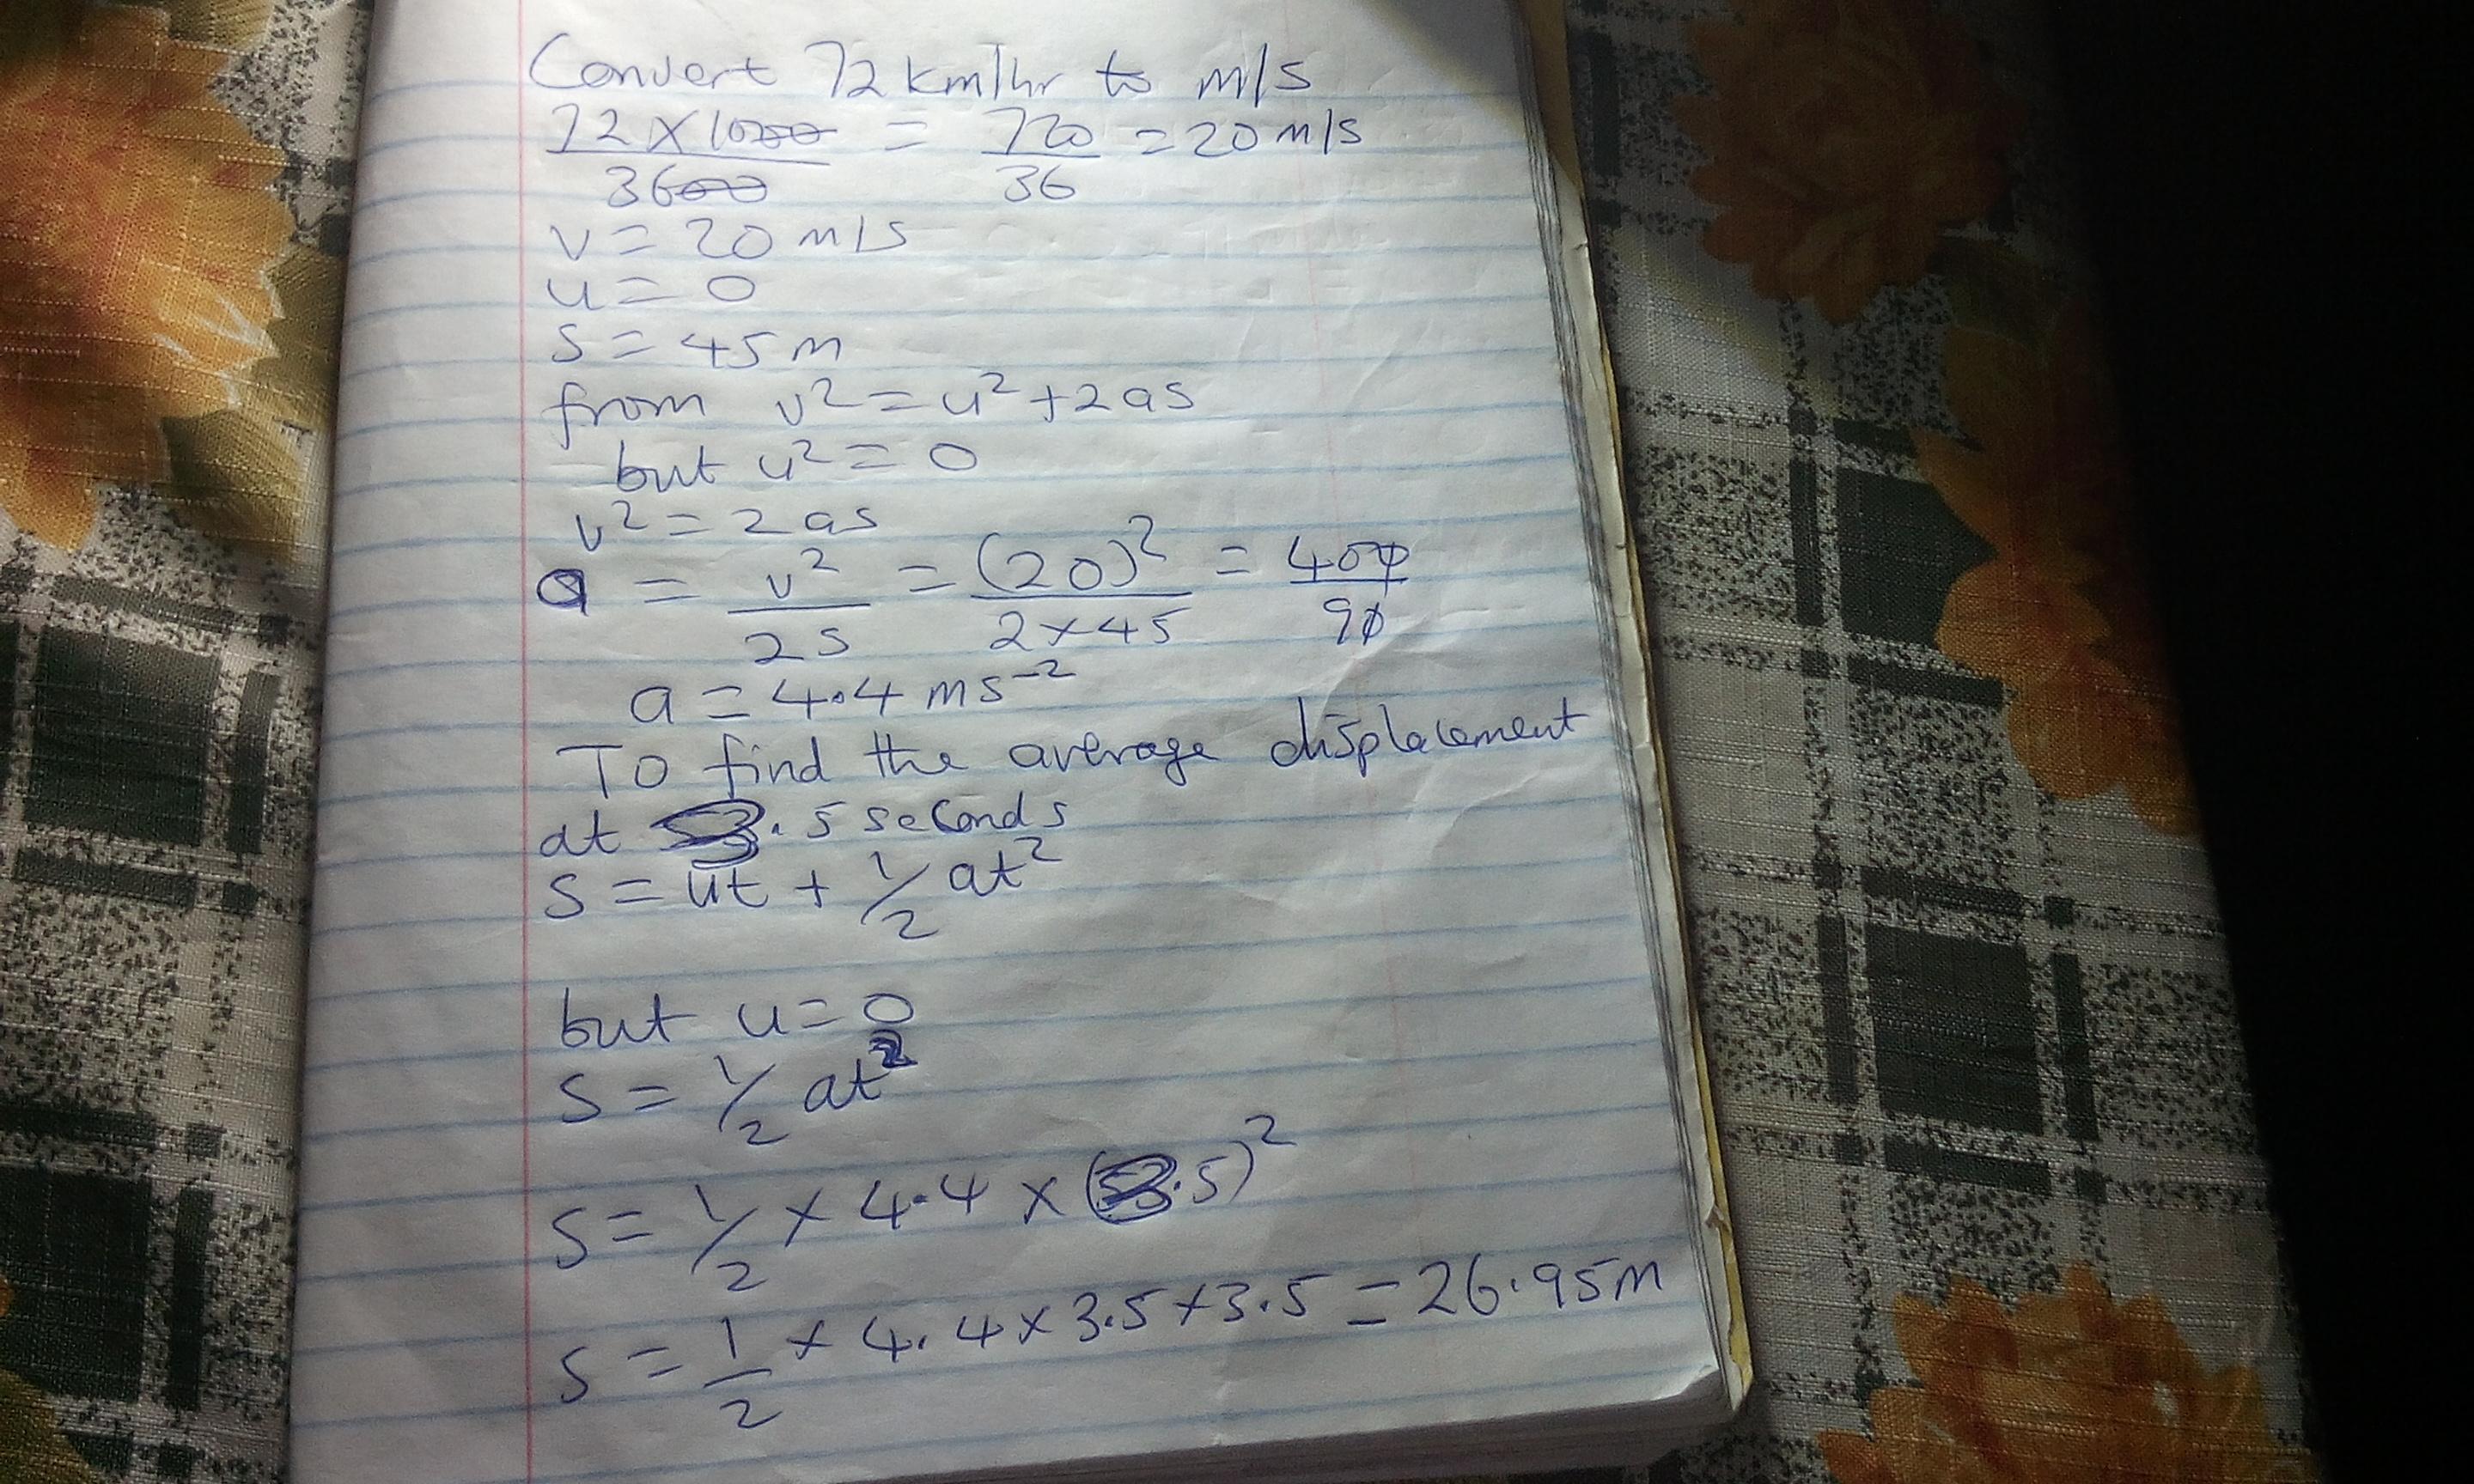 Convert 72 km/hr to m/s
72 × 1000 / 3600 = 720 / 36 = 20 m/s
v = 20 m/s
u = 0
s = 45 m
from v² = u² + 2as
but u² = 0
v² = 2as
a = v² / 2s = (20)² / 2 × 45 = 400 / 90
a = 4.4 ms⁻²
To find the average displacement
at 3.5 seconds
s = ut + 1/2 at²
but u = 0
s = 1/2 at²
s = 1/2 × 4.4 × (3.5)²
s = 1/2 × 4.4 × 3.5 × 3.5 = 26.95m